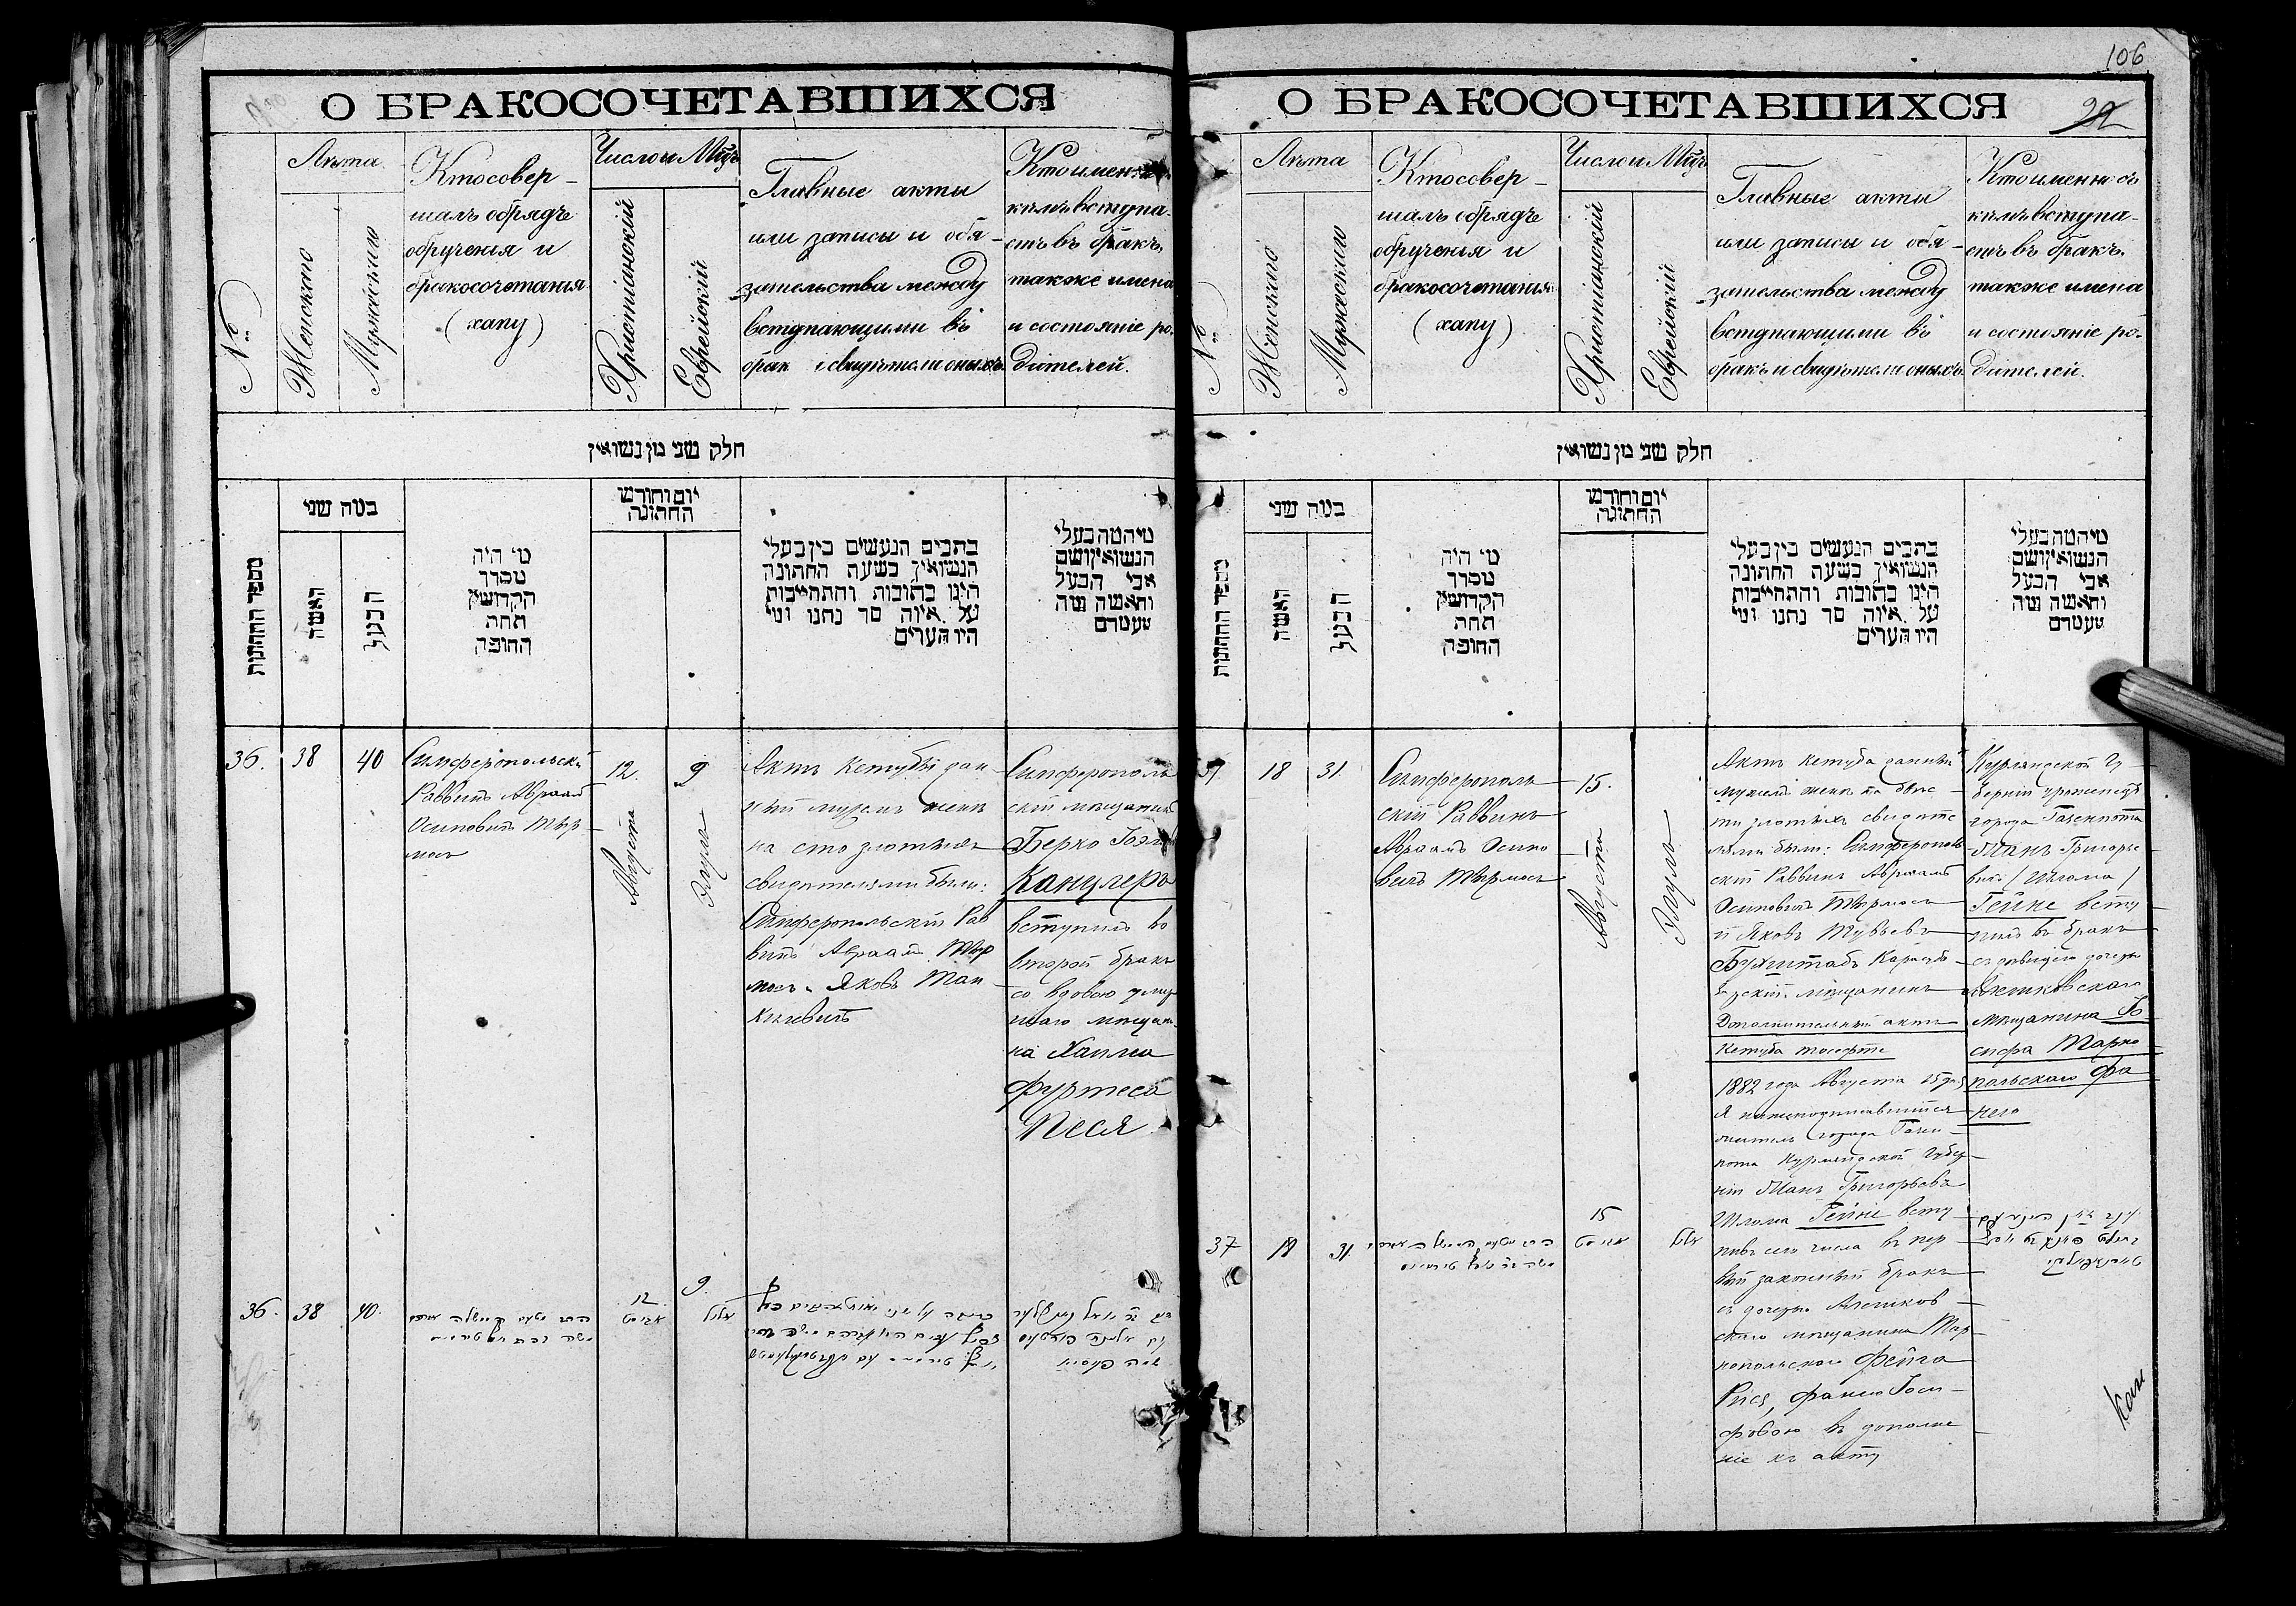 106
О БРАКОСОЧЕТАВШИХСЯ
№
Лѣта
Женскаго
Мужескаго
Кто совер-
шалъ обрядъ
обрученія и
бракосочетанія
(хапу)
Число и Мцъ
Христіанскій
Еврейскій
Главные акты
или записи и обя-
зательства между
вступающими въ
брак и свидѣтели оныхъ
Кто именно съ
кѣмъ вступа-
етъ въ бракъ,
также имена
и состояніе ро-
дителей.
חלק שני מן נשואין
מספר החתונות
כמה שני
האשה
הבעל
מי היה
מסדר
הקדושין
תחת
החופה
יום וחודש
החתונה
כתבים הנעשים בין בעלי
הנשואין בשעת החתונה
היינו כתובות והתחייבות
על איזה סך נתנו ומי
היו הערים
מי המה בעלי
הנשואין ושם
אבי הבעל
והאשה ומה
מעמדם
36.
38
40
Симферопольскій
Раввинъ Авраамъ
Осиповичъ Тыр-
мосъ
12.
Августа
9
Элуля
Актъ Кетубы дан-
ный мужемъ женѣ
на сто злотыхъ
свидѣтелями были:
Симферопольскій Рав
винъ Авраамъ Тыр
мосъ и Яковъ
Симферополь
скій мѣщанинъ
Берко
Канцлеръ
вступилъ во
второй бракъ
со вдовою умер
шаго мѣщани-
на Хаима
Фуртеса
Песя
36.
38
40.
12
אוגוסט
9.
אלול
О БРАКОСОЧЕТАВШИХСЯ
22
№
Лѣта
Женскаго
Мужескаго
Кто совер-
шалъ обрядъ
обрученія и
бракосочетанія
(хапу)
Число и Мцъ
Христіанскій
Еврейскій
Главные акты
или записи и обя-
зательства между
вступающими въ
бракъ и свидѣтели оныхъ
Кто именно съ
кѣмъ вступа-
етъ въ бракъ,
также имена
и состояніе ро-
дителей.
חלק שני מן נשואין
מספר החתונות
כמה שני
האשה
הבעל
מי היה
מסדר
הקדושין
תחת
החופה
יום וחודש
החתונה
כתבים הנעשים בין בעלי
הנשואין בשעת החתונה
היינו כתובות והתחייבות
על איזה סך נתנו ומי
היו הערים
מי המה בעלי
הנשואין ושם
אבי הבעל
והאשה ומה
מעמדם
37
18
31.
Симферополь
скій Раввинъ
Авраамъ Осипо
вичъ Тырмосъ
15.
Августа
Элуль
Актъ кетуба данный
мужемъ женѣ на двѣс-
ти злотыхъ свидѣте
лями были: Симферополь
скій Раввинъ Авраамъ
Осиповичъ Тырмосъ
и Яковъ Тувьевъ
Бухштабъ Карасуб-
зарскій мѣщанинъ
Дополнительный актъ
Кетуба тосефте
1882 года Августа 15 дня
Я нижеподписавшійся
житель города Газен-
пота Курляндской Губер-
ніи Григорьевъ
Шлома Гейне всту-
пивъ сего числа въ пер-
вый законный бракъ
съ дочерью Алешков-
скаго мѣщанина Тар-
нопольскаго Фейга
Рися, Фанею Іоси-
фовою въ дополне-
ніе къ акту
Курляндской Гу-
берніи уроженецъ
города Газенпота
Григорье
вичъ (Шлома)
Гейне всту-
пилъ въ бракъ
съ дѣвицею дочерью
Алешковскаго
мѣщанина Іо-
сифа Тарно-
польскаго Фа-
нею
37
18
31.
15
אוגוסט
אלול